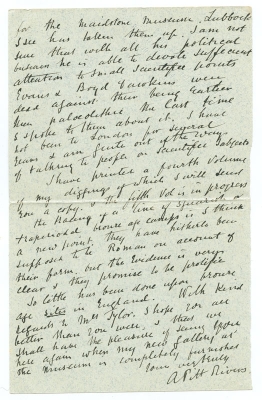 for the Maidstone Museum. Lubbock
I see has taken them up. I am not
sure that with all his political
business he is able to devote sufficient
attention to small scientific points
Evans & Boyd Dawkins were
dead against their being earlier
than palaeolithic the last time
I spoke to them about it. I have
not been to London for several
years & am quite out of the way
of talking to people on scientific subjects
I have printed a fourth volume
of my diggings of which I will send
you a copy. & the fifth Vol is in progress
the dating of a line of square or
trapezoidal bronze age camps is I think
a new point, they have hitherto been
supposed to be Roman on account of
their form. but the evidence is very
clear & they promise to be prolific
So little has been done upon bronze
age sites in England. With kind
regards to Mrs Tylor. I hope you are
better than you were & that we
shall have the pleasure of seeing you
here again when my new gallery at
the museum is completely furnished
Yours very truly
A Pitt Rivers